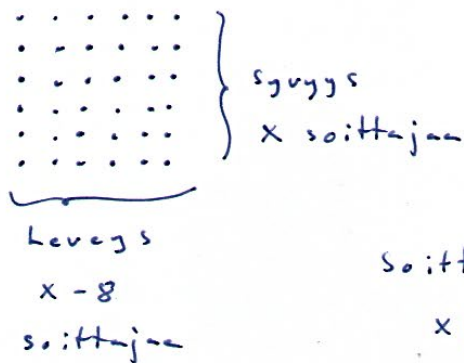 syvyys
x soittajaa
Leveys
x - 8
soittajaa
soitt
x